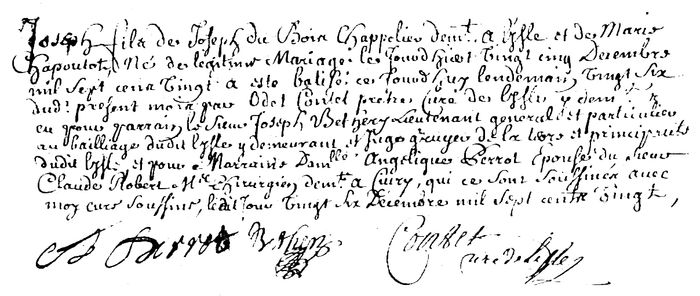 Joseph fils de Joseph du Bois Chappelier demt. a Lisle et de Marie
Chapoutot, Né de legitime Mariage le Jourdhier Vingt cinq Decembre
mil sept cens Vingt a esté batisé ce Jourdhuy lendemain Vingt Six
dudt. présent mois par Odet Contet prétre Curé de Lisle y demt.
eu pour parrain le sieur Joseph Bethery Lieutenant general et particulier
au bailliage dudit Lisle y demeurant et Juge gruyer de la terre et principauté
dudit Lisle et pour Marraine Damlle. Angelique Perrot épouse du sieur
Claude Robert Me. Chirurgien demt. a Civry, qui ce sont soussinés avec
moy curé soussiné, ledit Jour Vingt Six Decembre mil sept cents Vingt,
Perrot Bethery Contet
curé de Lisle